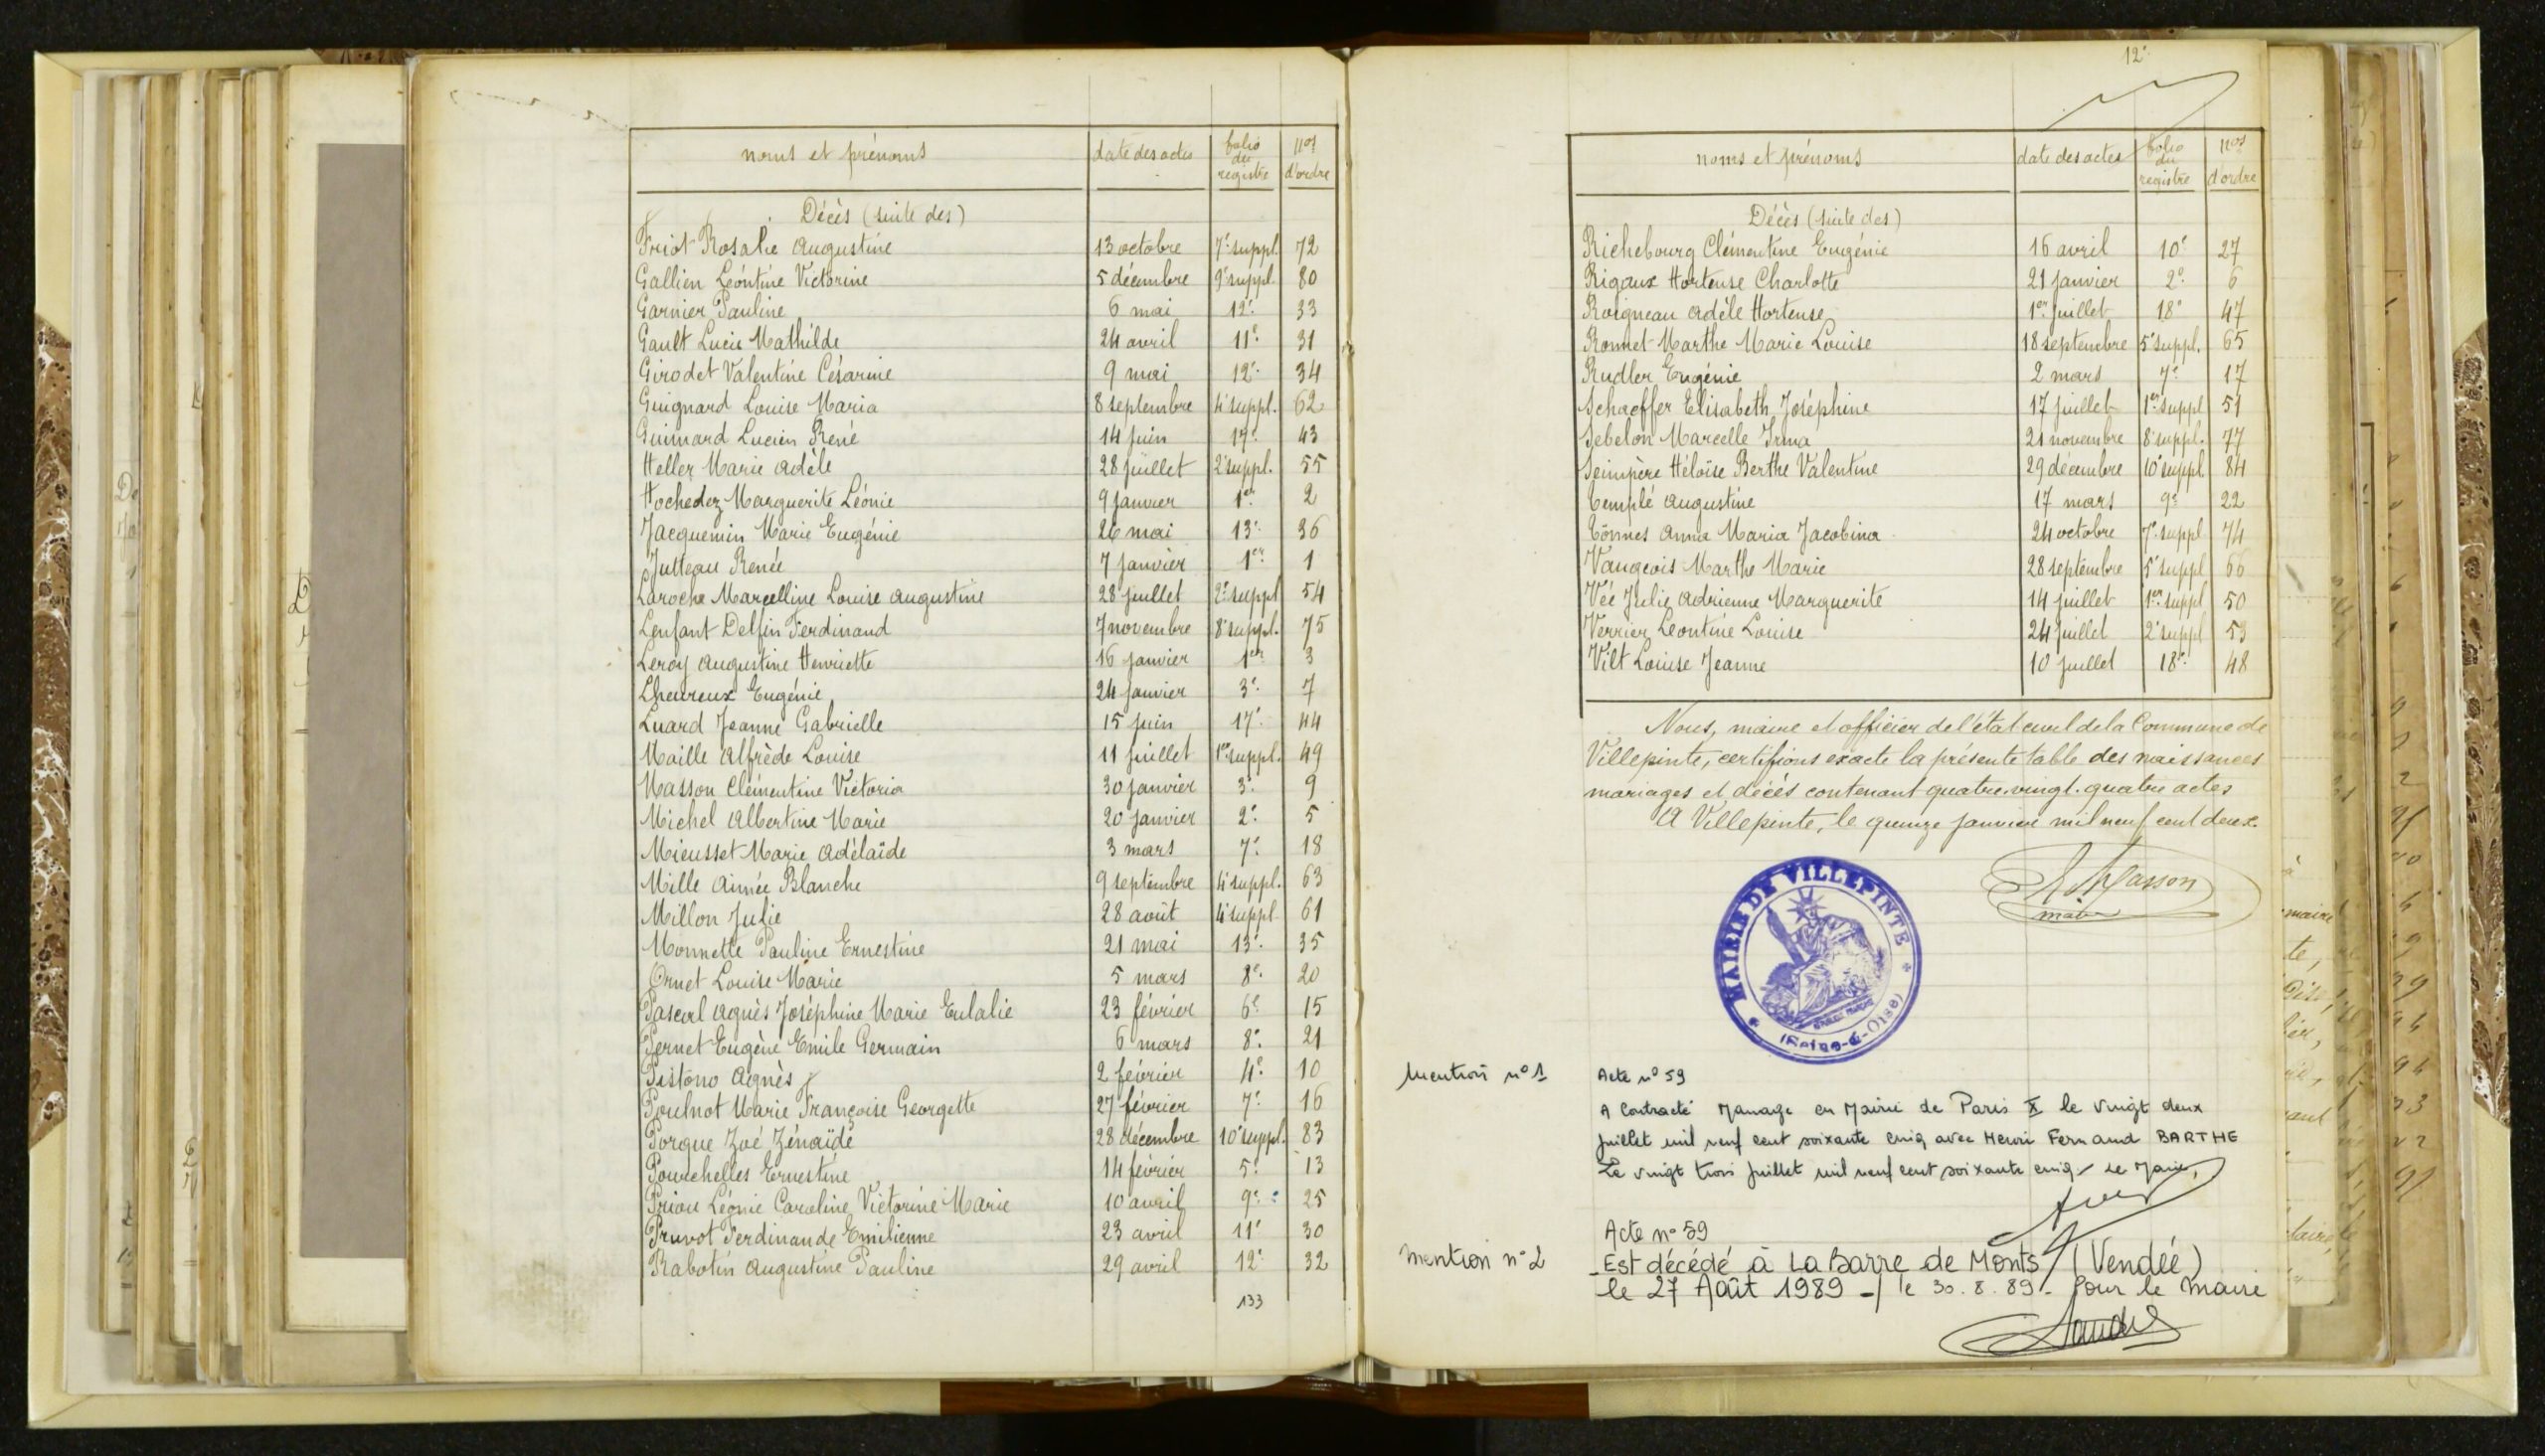 noms et prénoms date des actes folio du registre nos d'ordre
Décès (suite des)
Friot Rosalie Augustine 13 octobre 7e suppl. 72
Gallien Léontine Victorine 5 décembre 9e suppl. 80
Garnier Pauline 6 mai 12e 33
Gault Lucie Mathilde 24 avril 11e 31
Girodet Valentine Césarine 9 mai 12e 34
Guignard Louise Maria 8 septembre 4e suppl. 62
Guimard Lucien René 14 juin 17e 43
Heller Marie Adèle 28 juillet 2e suppl. 55
Hochedez Marguerite Léonie 9 janvier 1er 2
Jacquemin Marie Eugénie 26 mai 13e 36
Jutteau Renée 7 janvier 1er 1
Laroche Marcelline Louise Augustine 28 juillet 2e suppl 54
Lenfant Delfin Ferdinand 7 novembre 8e suppl. 75
Leroy Augustine Henriette 16 janvier 1er 3
Lheureux Eugénie 24 janvier 3e 7
Luard Jeanne Gabrielle 15 juin 17e 44
Maille Alfrède Louise 11 juillet 1er suppl. 49
Masson Clémentine Victoria 30 janvier 3e 9
Michel Albertine Marie 20 janvier 2e 5
Mieusset Marie Adélaïde 3 mars 7e 18
Mille Aimée Blanche 9 septembre 4e suppl. 63
Millon Julie 28 août 4e suppl 61
Monnette Pauline Ernestine 21 mai 13e 35
Ornet Louise Marie 5 mars 8e 20
Pascal Agnès Joséphine Marie Eulalie 23 février 6e 15
Pernet Eugène Emile Germain 6 mars 8e 21
Pistono Agnès 2 février 4e 10
Poulnot Marie Françoise Georgette 27 février 7e 16
Porque Zoé Zénaïde 28 décembre 10e suppl. 83
Pourchelles Ernestine 14 février 5e 13
Priou Léonie Caroline Victorine Marie 10 avril 9e 25
Pruvot Ferdinande Emilienne 23 avril 11e 30
Rabotin Augustine Pauline 29 avril 12e 32
133
12e
noms et prénoms date des actes folio du registre nos d'ordre
Décès (suite des)
Richebourg Clémentine Eugénie 16 avril 10e 27
Rigaux Hortense Charlotte 21 janvier 2e 6
Roigneau Adèle Hortense 1er juillet 18e 47
Ronnet Marthe Marie Louise 18 septembre 5e suppl. 65
Rudler Eugénie 2 mars 7e 17
Schaeffer Elisabeth Joséphine 17 juillet 1er suppl 51
Sebelon Marcelle Irma 21 novembre 8e suppl. 77
Seimpère Héloïse Berthe Valentine 29 décembre 10e suppl 84
Templé Augustine 17 mars 9e 22
Tönnes Anna Maria Jacobina 24 octobre 7e suppl 74
Vaugeois Marthe Marie 28 septembre 5e suppl 66
Vée Julie Adrienne Marguerite 14 juillet 1er suppl 50
Verrier Leontine Louise 24 juillet 2e suppl 53
Vilt Louise Jeanne 10 juillet 18e 48
Nous, maire et officier de l'état civil de la Commune de
Villepinte, certifions exacte la présente table des naissances
mariages et décès contenant quatre-vingt-quatre actes
A Villepinte, le quinze janvier mil neuf cent deux.
Masson
maire
MAIRIE DE VILLEPINTE
(Seine-&-Oise)
Mention n° 1 Acte n° 59
A Contracté Mariage en Mairie de Paris X le vingt deux
juillet mil neuf cent soixante cinq avec Henri Fernand BARTHE
Le vingt trois juillet mil neuf cent soixante cinq. Le Maire,
Acte n° 59
Mention n° 2 Est décédé à La Barre de Monts (Vendée)
le 27 Août 1989 - le 30.8.89 - Pour le Maire